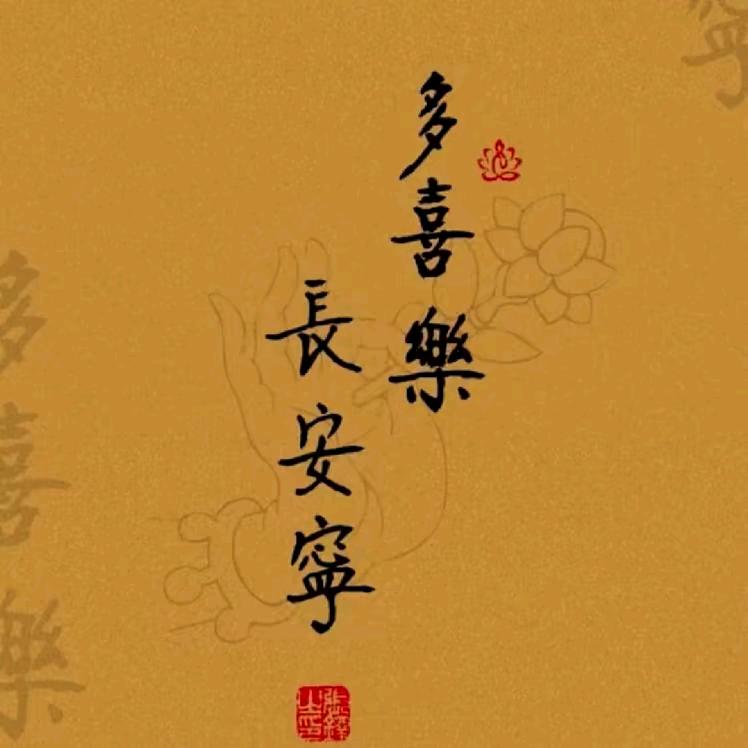 多喜樂
長安寧
多喜樂
寧